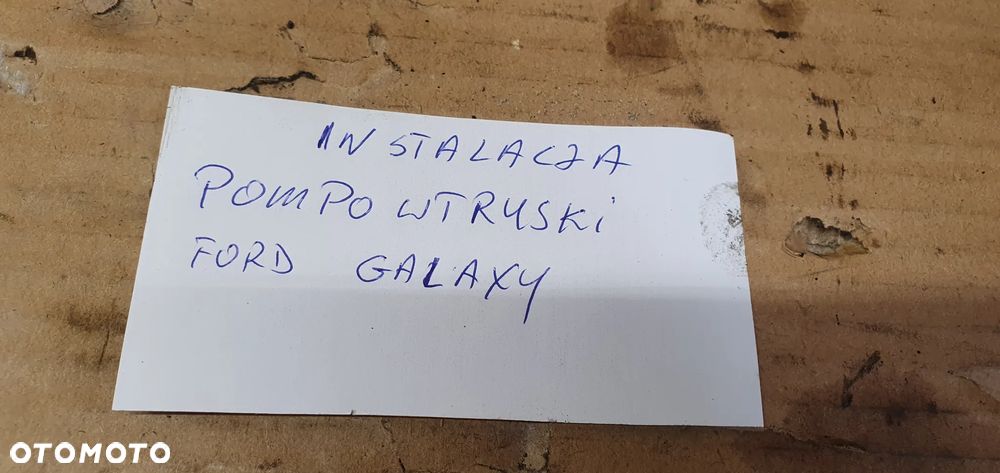 INSTALACJA
POMPO WTRYSKI
FORD GALAXY
OTOMOTO